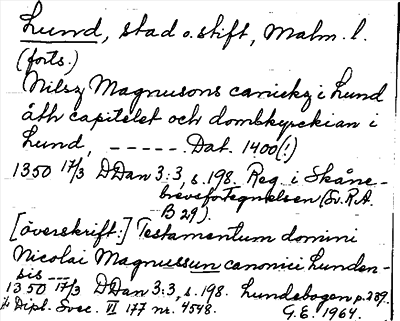 Lund, stad o. stift, Malm. l.
(forts.)
Nilsz Magnusons canickz i Lund
åth capitelet och dombkyrckian i
Lund, ------. Dat. 1400(!)
1350 17/3 DDan 3:3, s. 198. Reg. i Skåne-
brevsförtegnelsen (Sv. R.A.
B 29).
[överskrift:] Testamentum domini
Nicolai Magnussun canonici Lunden-
sis ---
1350 17/3 DDan 3:3, s. 198. Lundebogen p. 289.
Dipl. Svec. VI 177 nr. 4548. G.E. 1964.